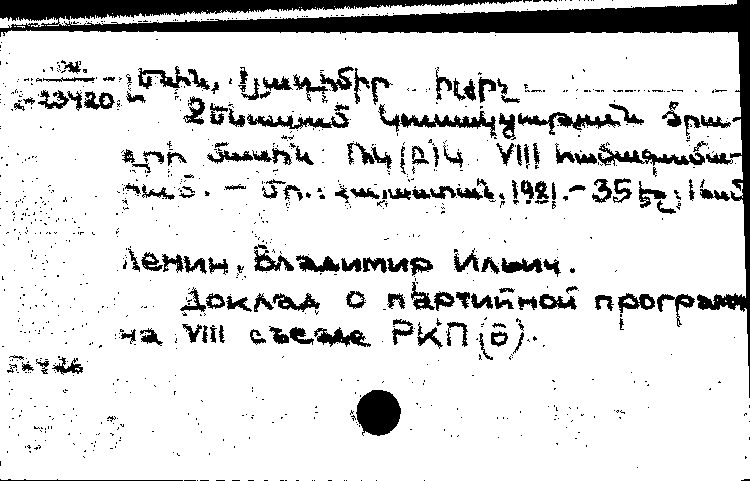 Լենին, Վլադիմիր Իլյիչ
2-23420
Զեկուցում կուսակցության ծրա-
գրի մասին ՌԿ(բ)Կ VIII համագումա-
րում. — Եր.: Հայաստան, 1981.- 35 էջ;
Ленин, Владимир Ильич.
Доклад о партийной програм-
ма VIII съезде РКП(б).